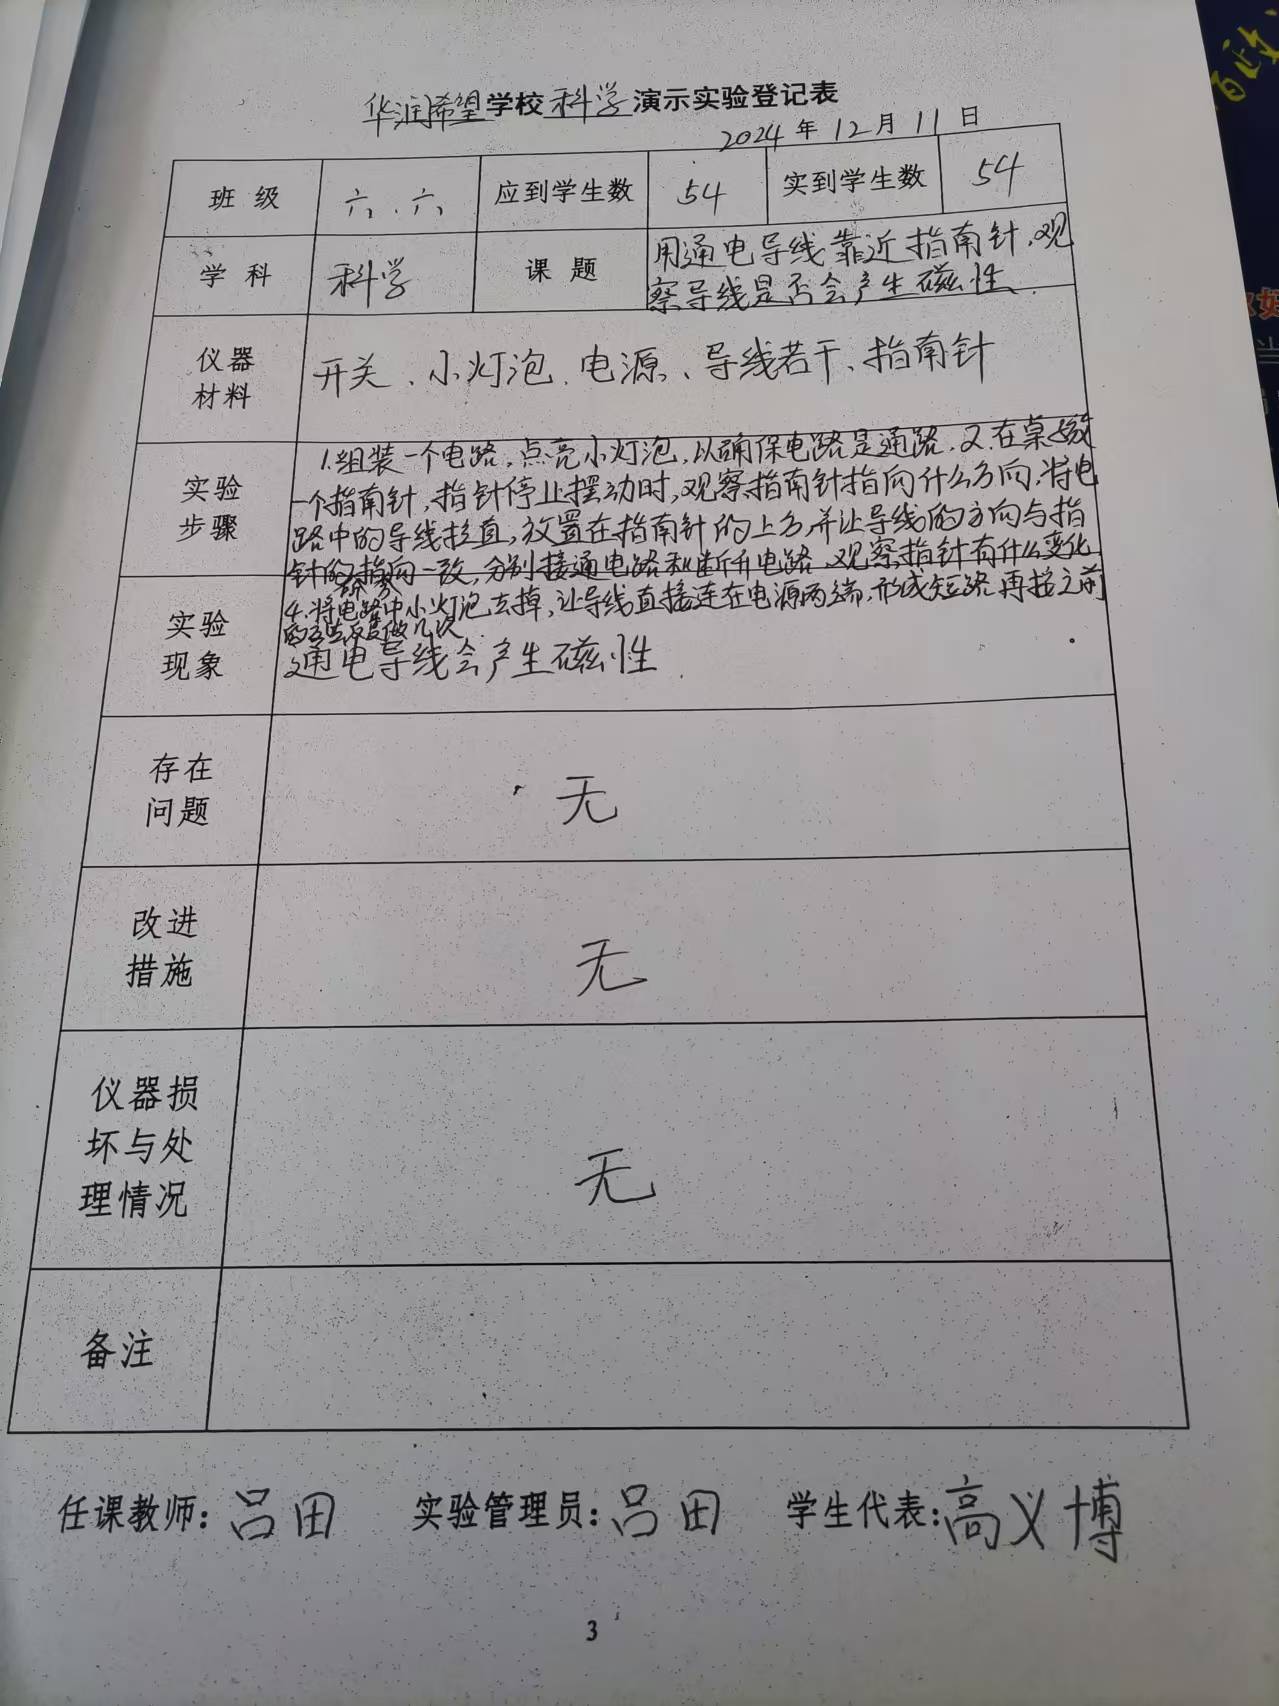 华润希望学校科学演示实验登记表
2024年12月11日
班 级 六、六 应到学生数 54 实到学生数 54
学 科 科学 课 题 用通电导线靠近指南针,观
察导线是否会产生磁性.
仪器
材料
开关、小灯泡、电源、导线若干、指南针
实验
步骤
1.组装一个电路,点亮小灯泡,以确保电路是通路.2.在桌放
一个指南针,指针停止摆动时,观察指南针指向什么方向.将电
路中的导线拉直,放置在指南针的上方,并让导线的方向与指
针的指向一致,分别接通电路和断开电路,观察指针有什么变化
4.将电路中小灯泡去掉,让导线直接连在电源两端,形成短路.再按之前
的方法反复做几次
实验
现象
通电导线会产生磁性.
存在
问题
无
改进
措施
无
仪器损
坏与处
理情况
无
备注
任课教师:吕田 实验管理员:吕田 学生代表:高义博
3